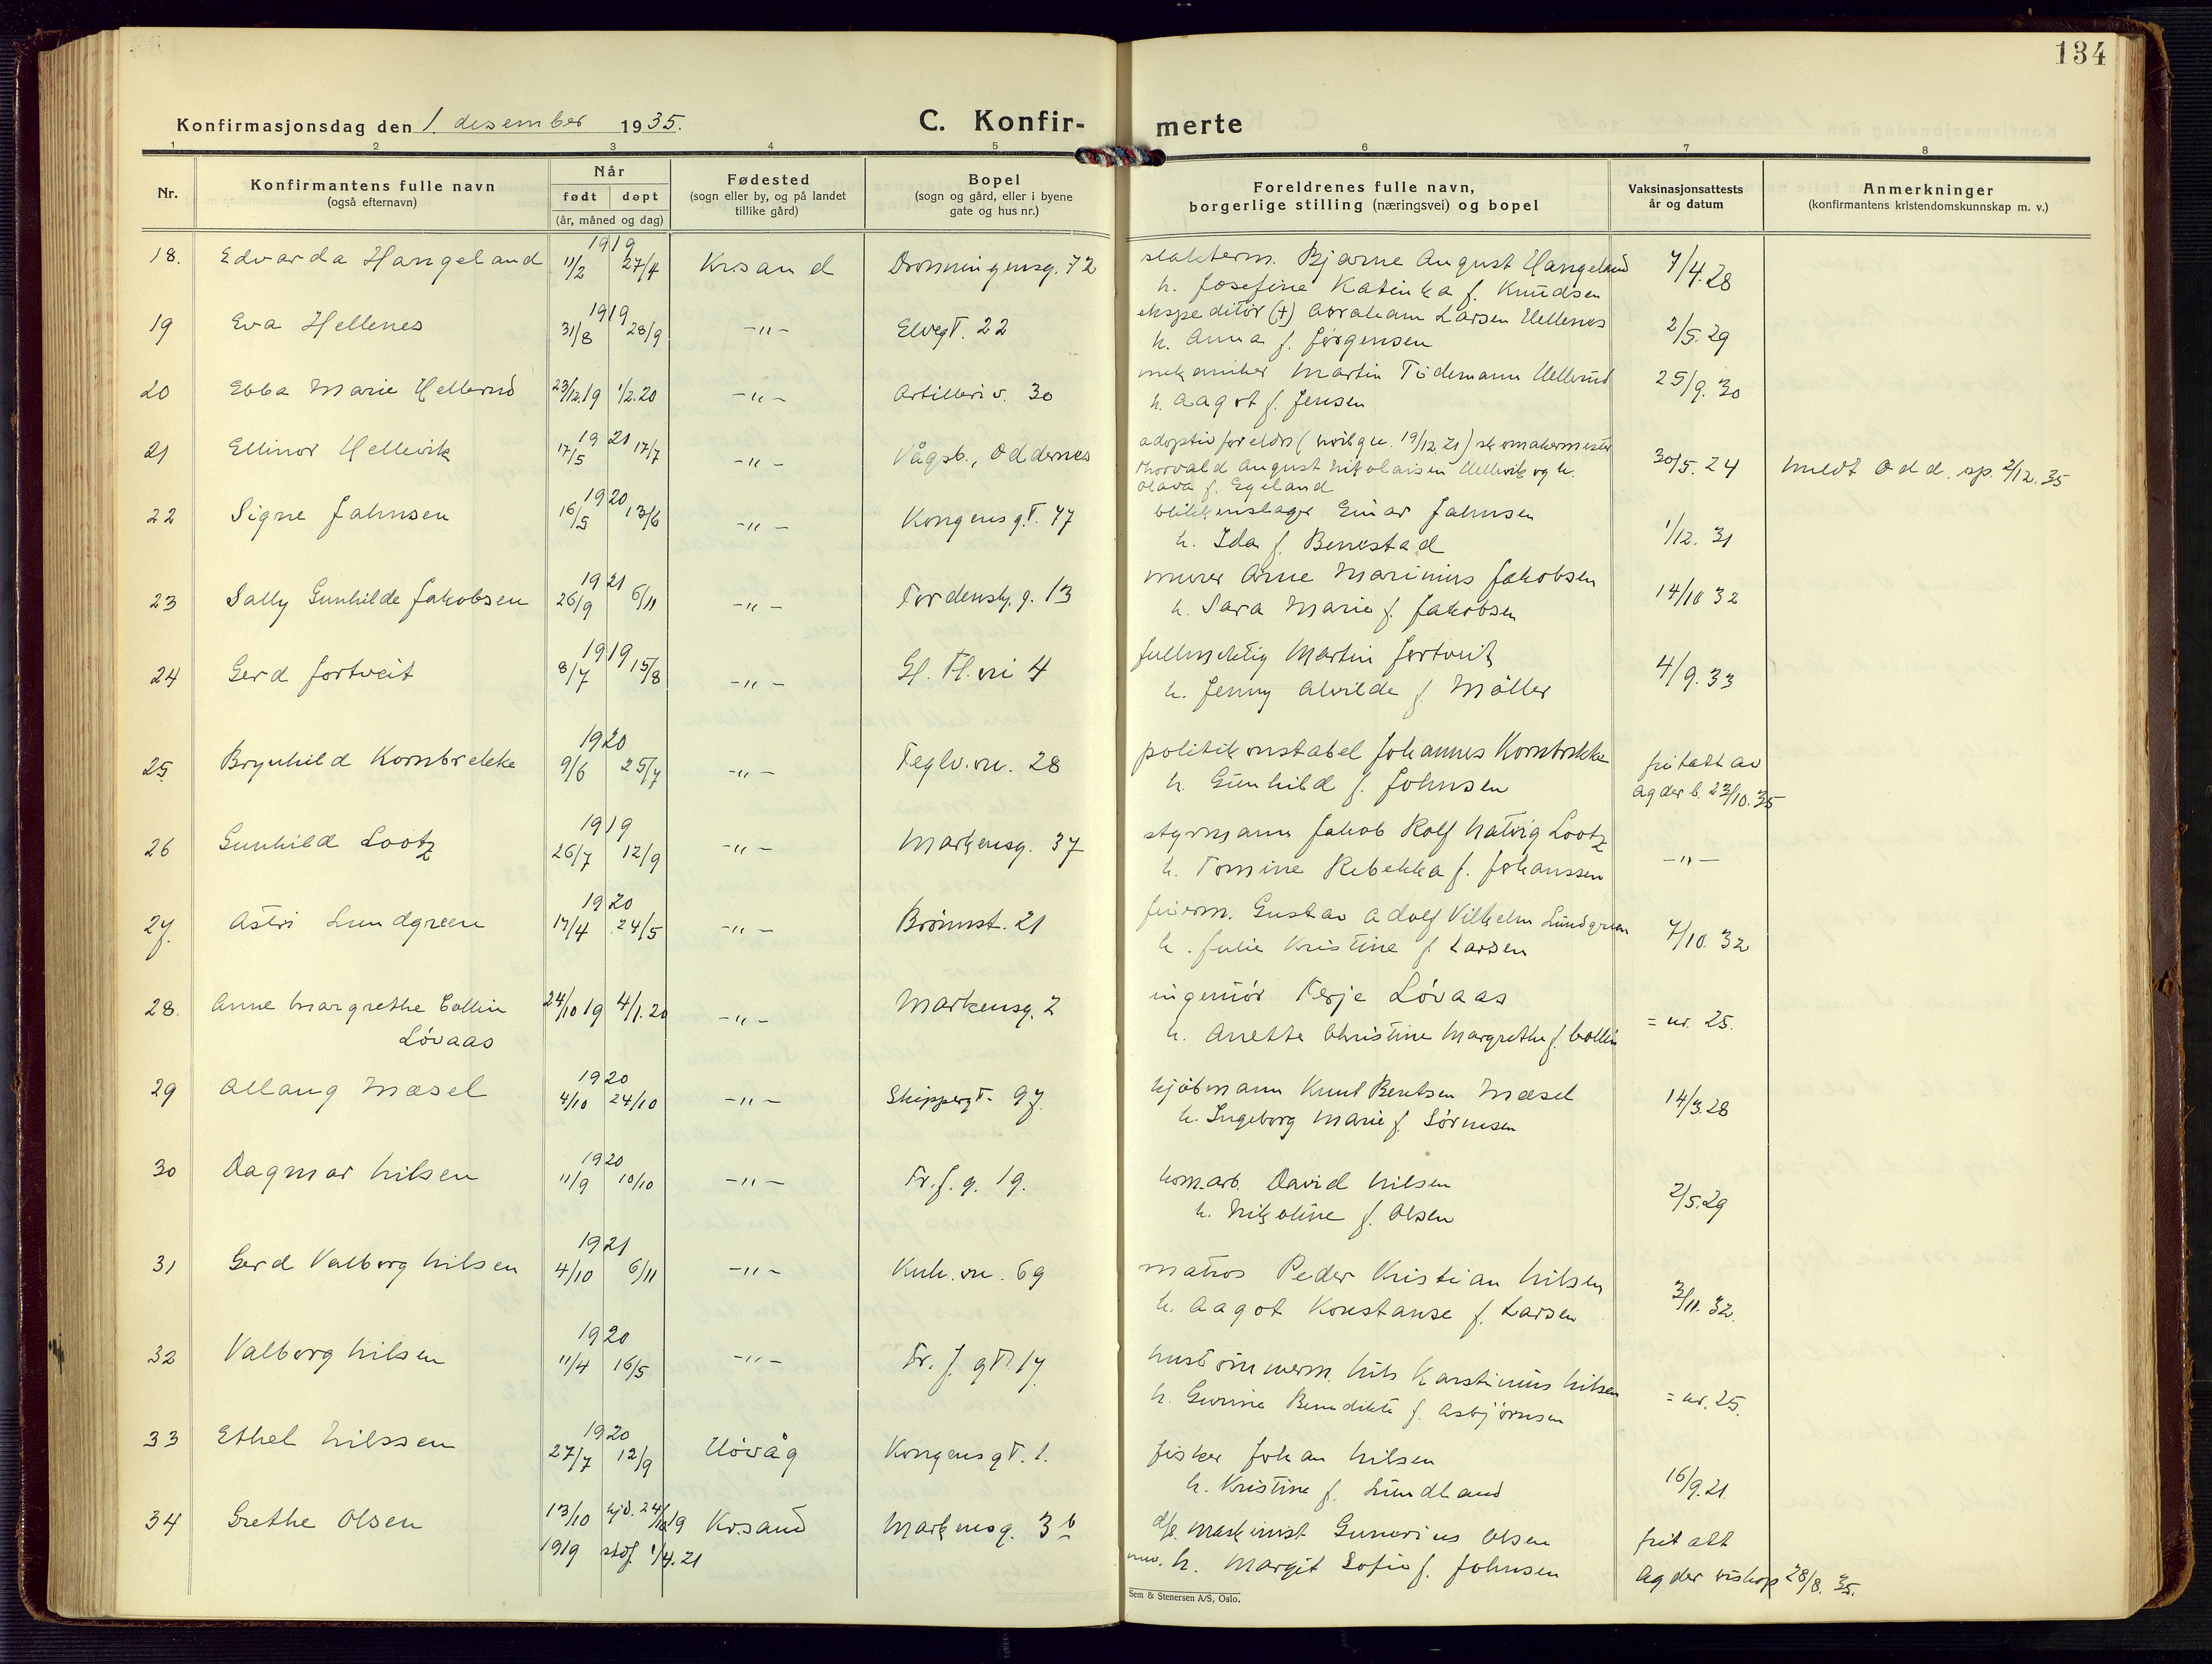 134
Konfirmasjonsdag den 1. desember 1935.
C. Konfir-
merte
1 2 3 4 5 6 7 8
Nr.
Konfirmantens fulle navn
(også efternavn)
Når
født døpt
(år, måned og dag)
Fødested
(sogn eller by, og på landet
tillike gård)
Bopel
(sogn og gård, eller i byene
gate og hus nr.)
Foreldrenes fulle navn,
borgerlige stilling (næringsvei) og bopel
Vaksinasjonsattests
år og datum
Anmerkninger
(konfirmantens kristendomskunnskap m. v.)
18. Edvarda Haugeland 1919 11/2 27/4 Krsand Dronningensg. 72 slakterm. Bjarne August Haugeland 7/4.28
h. Josefine Katinka f. Knudsen
19 Eva Hellenes 1919 31/8 28/9 -"- Elvegt. 22 ekspeditør (+) Abraham Larsen Hellenes 2/5.29
h. Anna f. Jørgensen
20 Ebba Marie Hellerud 23/12.19 1/2.20 -"- Artilleriv. 30 mekaniker Martin Tidemann Hellerud 25/9.30
h. Aagot f. Jensen
21 Ellinor Hellevik 1921 17/5 17/7 -"- Vågsb., Oddernes adoptivforeldre ( 19/12.21) skomakermester
Thorvald August Nikolaisen Hellevik og h. 30/5.24 meldt Odd. sp. 2/12.35
Olava f. Egeland
22 Signe Jahnsen 1920 16/5 13/6 -"- Kongensgt. 47 blikkenslager Einar Jahnsen 1/12.31
h. Ida f. Benestad
23 Sally Gunhilde Jakobsen 1921 26/9 6/11 -"- Tordensk.g. 13 murer Arne Marinius Jakobsen 14/10 32
h. Sara Marie f. Jakobsen
24 Gerd Jortveit 1919 8/7 15/8 -"- Gl. Tl. vei 4 fullmektig Martin Jortveit 4/9.33
h. Jenny Alvilde f. Møller
25 Brynhild Kornbrekke 1920 9/6 25/7 -"- Teglv.vn. 28 politikonstabel Johannes Kornbrekke fritatt av
h. Gunhild f. Johnsen Agder b. 23/10.35
26 Gunhild Lootz 1919 26/7 12/9 -"- Markensg. 37 styrmann Jakob Rolf Natvig Lootz -"-
h. Tomine Rebekka f. Johanssen
27. Astri Lundgreen 1920 17/4 24/5 -"- Brønnst. 21 feierm. Gustav Adolf Vilhelm Lundgreen 7/10.32
h. Julie Kristine f. Larsen
28. Anne Margrethe Collin 24/10 19 4/1.20 -"- Markensg. 2 ingeniør Terje Løvaas = nr. 25.
Løvaas h. Anette Christine Margrethe f. Collin
29 Allaug Mæsel 1920 4/10 24/10 -"- Skippergt. 97. kjøbmann Knut Bentsen Mæsel 14/3.28
h. Ingeborg Marie f. Sørensen
30 Dagmar Nilsen 1920 11/9 10/10 -"- Fr.f.g. 19. kom.arb. David Nilsen 2/5.29
h. Nikoline f. Olsen
31 Gerd Valborg Nilsen 1921 4/10 6/11 -"- Kuh.vn. 69 matros Peder Kristian Nilsen 3/11.32.
h. Aagot Konstanse f. Larsen
32 Valborg Nilsen 1920 11/4 16/5 -"- Fr.f.gt. 17. hustømmerm. Nils Karstinius Nilsen = nr. 25.
h. Gurine Benedikte f. Asbjørnsen
33 Ethel Nilssen 1920 27/7 12/9 Høvåg Kongensgt. 1. fisker Johan Nilsen 16/9.21.
h. Kristine f. Lundland
34 Grethe Olsen 13/10 hjd. 24/10 19 Krsand Markensg. 3 b maskinist Gunerius Olsen fritatt
1919 stdf. 1/4.21 h. Margit Sofie f. Johnsen Agder biskop 28/8.35.
Sem & Stenersen A/S, Oslo.